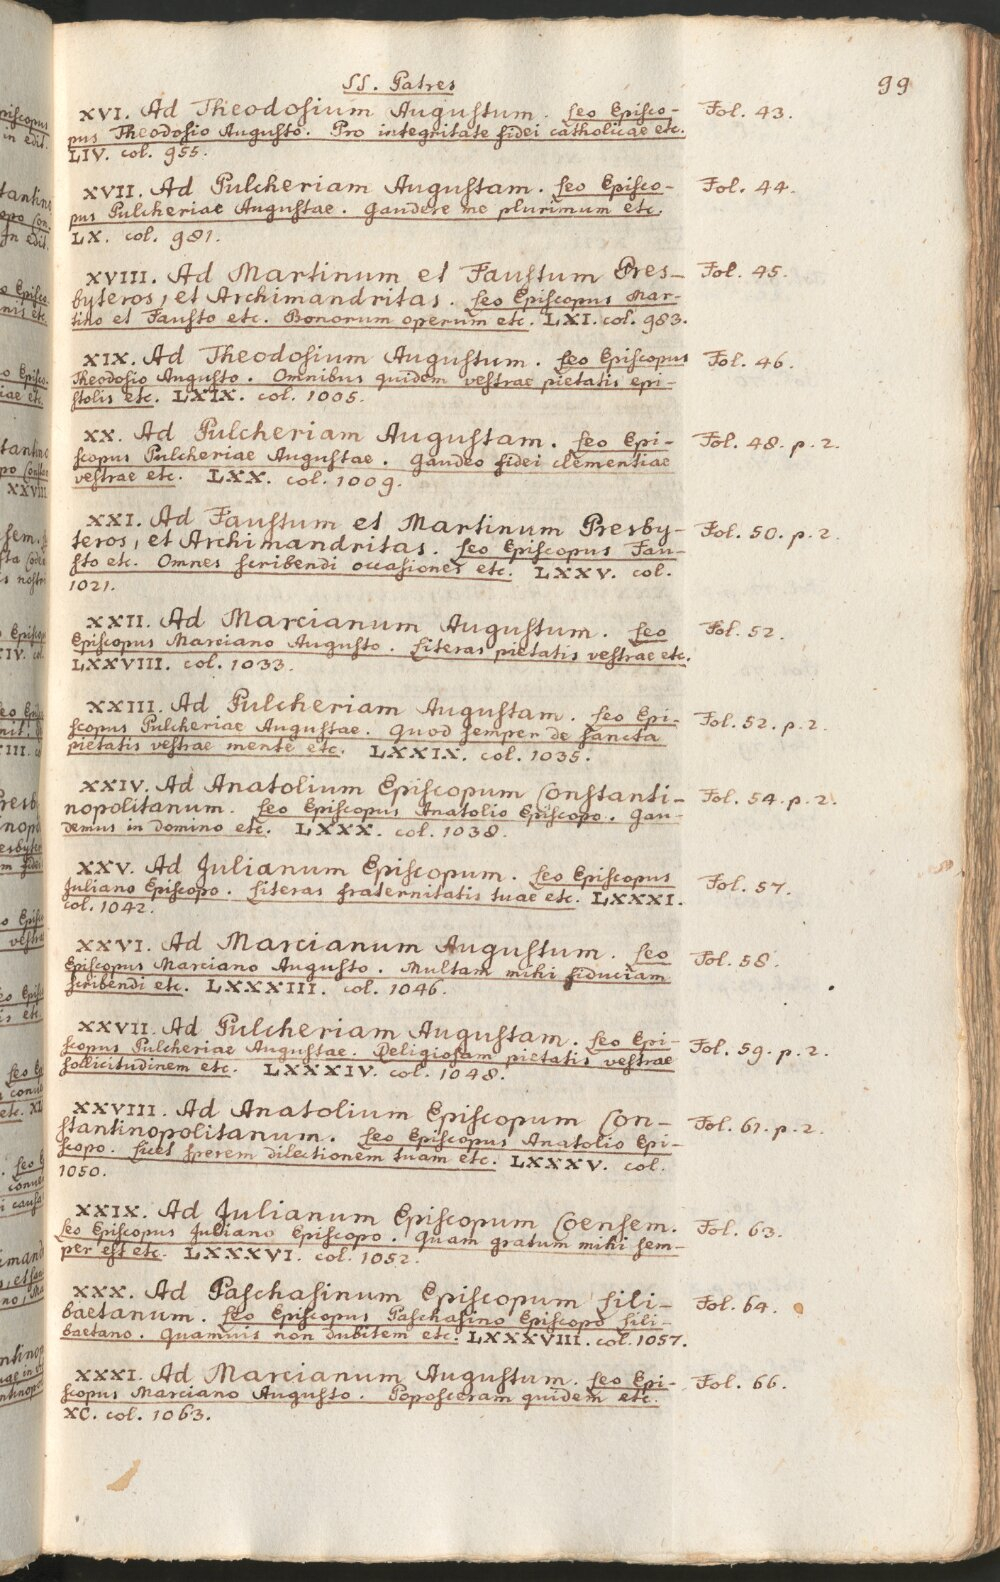 SS. Patres
99
XVI. Ad Theodosium Augustum. Leo Episco-
Fol. 43.
pus Theodosio Augusto. Pro integritate fidei catholicae etc.
LIV. col. 955.
XVII. Ad Pulcheriam Augustam. Leo Episco-
Fol. 44.
pus Pulcheriae Augustae. Gaudere me plurimum etc.
LX. col. 981.
XVIII. Ad Martinum et Faustum Pres-
Fol. 45.
byteros, et Archimandritas. Leo Episcopus Mar-
tino et Fausto etc. Bonorum operum etc. LXI. col. 983.
XIX. Ad Theodosium Augustum. Leo Episcopus
Fol. 46.
Theodosio Augusto. Omnibus quidem vestrae pietatis epi-
stolis etc. LXIX. col. 1005.
XX. Ad Pulcheriam Augustam. Leo Epi-
Fol. 48. p. 2.
scopus Pulcheriae Augustae. Gaudeo fidei clementiae
vestrae etc. LXX. col. 1009.
XXI. Ad Faustum et Martinum Presby-
Fol. 50. p. 2.
teros, et Archimandritas. Leo Episcopus Fau-
sto etc. Omnes scribendi occasiones etc. LXXV. col.
1021.
XXII. Ad Marcianum Augustum. Leo
Fol. 52.
Episcopus Marciano Augusto. Literas pietatis vestrae etc.
LXXVIII. col. 1033.
XXIII. Ad Pulcheriam Augustam. Leo Epi-
Fol. 52. p. 2.
scopus Pulcheriae Augustae. Quod semper de sancta
pietatis vestrae mente etc. LXXIX. col. 1035.
XXIV. Ad Anatolium Episcopum Constanti-
Fol. 54. p. 2.
nopolitanum. Leo Episcopus Anatolio Episcopo. Gau-
demus in domino etc. LXXX. col. 1038.
XXV. Ad Julianum Episcopum. Leo Episcopus
Fol. 57.
Juliano Episcopo. Literas fraternitatis tuae etc. LXXXI.
col. 1042.
XXVI. Ad Marcianum Augustum. Leo
Fol. 58.
Episcopus Marciano Augusto. Multam mihi fiduciam
scribendi etc. LXXXIII. col. 1046.
XXVII. Ad Pulcheriam Augustam. Leo Epi-
Fol. 59. p. 2.
scopus Pulcheriae Augustae. Religiosam pietatis vestrae
sollicitudinem etc. LXXXIV. col. 1048.
XXVIII. Ad Anatolium Episcopum Con-
Fol. 61. p. 2.
stantinopolitanum. Leo Episcopus Anatolio Epi-
scopo. Licet sperem dilectionem tuam etc. LXXXV. col.
1050.
XXIX. Ad Julianum Episcopum Coensem.
Fol. 63.
Leo Episcopus Juliano Episcopo. Quam gratum mihi sem-
per est etc. LXXXVI. col. 1052.
XXX. Ad Paschasinum Episcopum Lili-
Fol. 64.
baetanum. Leo Episcopus Paschasino Episcopo Lili-
baetano. Quamuis non dubitem etc. LXXXVIII. col. 1057.
XXXI. Ad Marcianum Augustum. Leo Epi-
Fol. 66.
scopus Marciano Augusto. Poposceram quidem etc.
XC. col. 1063.